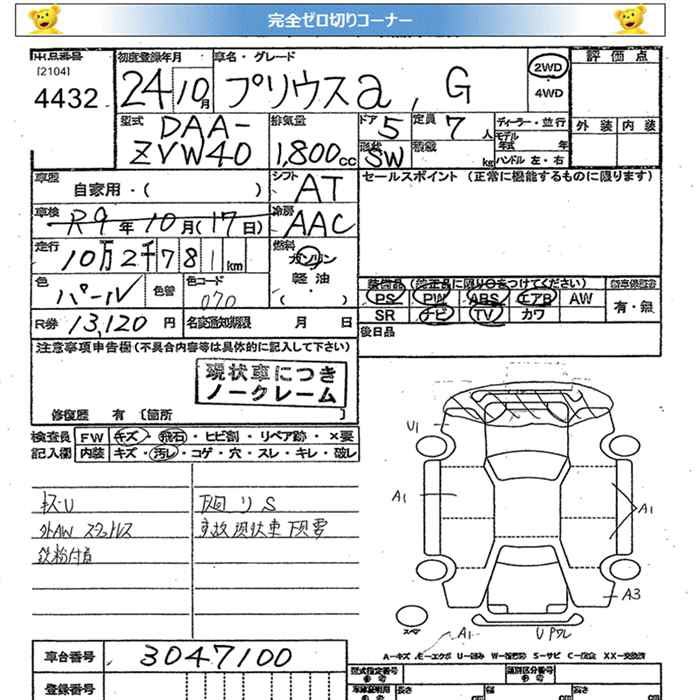 完全ゼロ切りコーナー
出品番号 初度登録年月 車名・グレード 評価点
[2104]
4432 24 10月 プリウスa, G 2WD
4WD
型式 DAA-ZVW40 排気量 1,800cc ドア 5 定員 7人 ディーラー・並行
外装 内装
モデル年式 年
形状 SW 積載 kg ハンドル 左・右
車歴 自家用・( ) シフト AT セールスポイント(正常に機能するものに限ります)
車検 R9年10月(17日) 冷房 AAC
走行 10万2千781km 燃料 ガソリン
軽油
( )
色 パール 色替 色コード 070
装備品(純正品に限り○をつけてください) 保証書
PS PW ABS エアB AW 有・無
SR ナビ TV カワ
R券 13,120円 名変通知期限 月 日
後日品
注意事項申告欄(不具合内容等は具体的に記入して下さい)
現状車につき
ノークレーム
修復歴 有 [箇所 ]
検査員 FW キズ・飛石・ヒビ割・リペア跡・×要
記入欄 内装 キズ・汚レ・コゲ・穴・スレ・キレ・破レ
U1
A1
A1
A3
キズ・U 下廻りS
外AW スタッドレス 事故現状車下見要
鉄粉付着
スペア
A1
Uワレ
A-キズ E-エクボ U-凹み W-補修跡 S-サビ C-腐食 XX-交換済
車台番号 3047100
型式指定番号 類別区分番号
登録番号
長さ cm 幅 cm 高さ cm